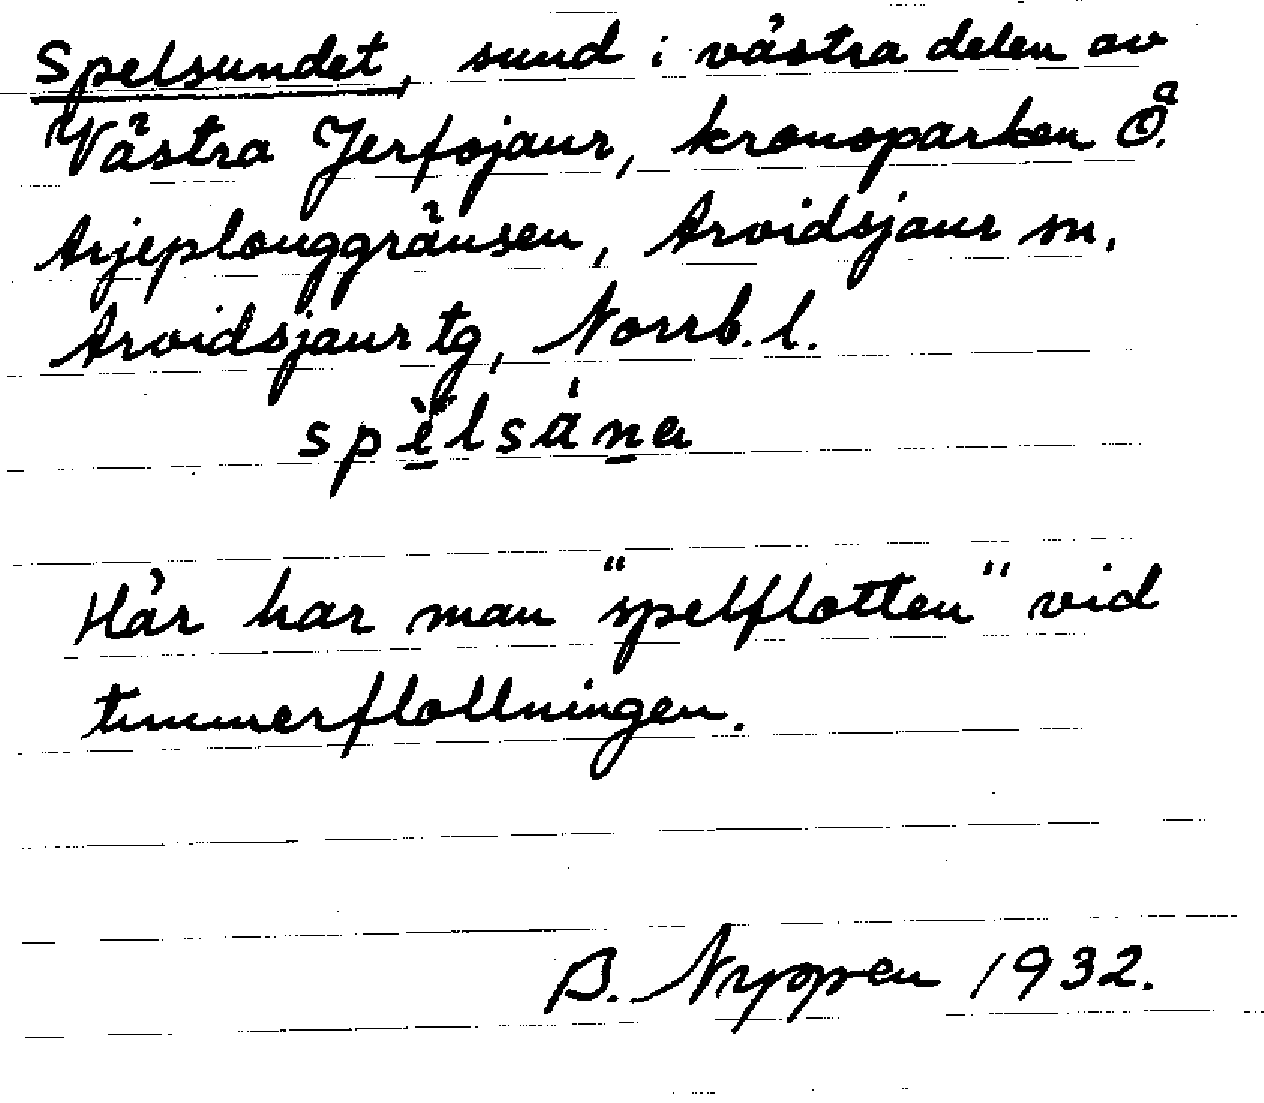 Spelsundet, sund i västra delen av
Västra Jerfojaur, kronoparken Ö. å
Arjeplouggränsen, Arvidsjaur sn,
Arvidsjaur tg, Norrb. l.
spèlsána
Här har man "spelflotten" vid
timmerflottningen.
B. Nyppen 1932.